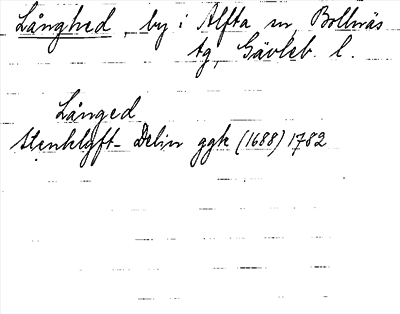 Långhed, by i Alfta sn, Bollnäs
tg, Gävleb. l.
Långed
Stenklyft- Delin ggk (1688) 1782